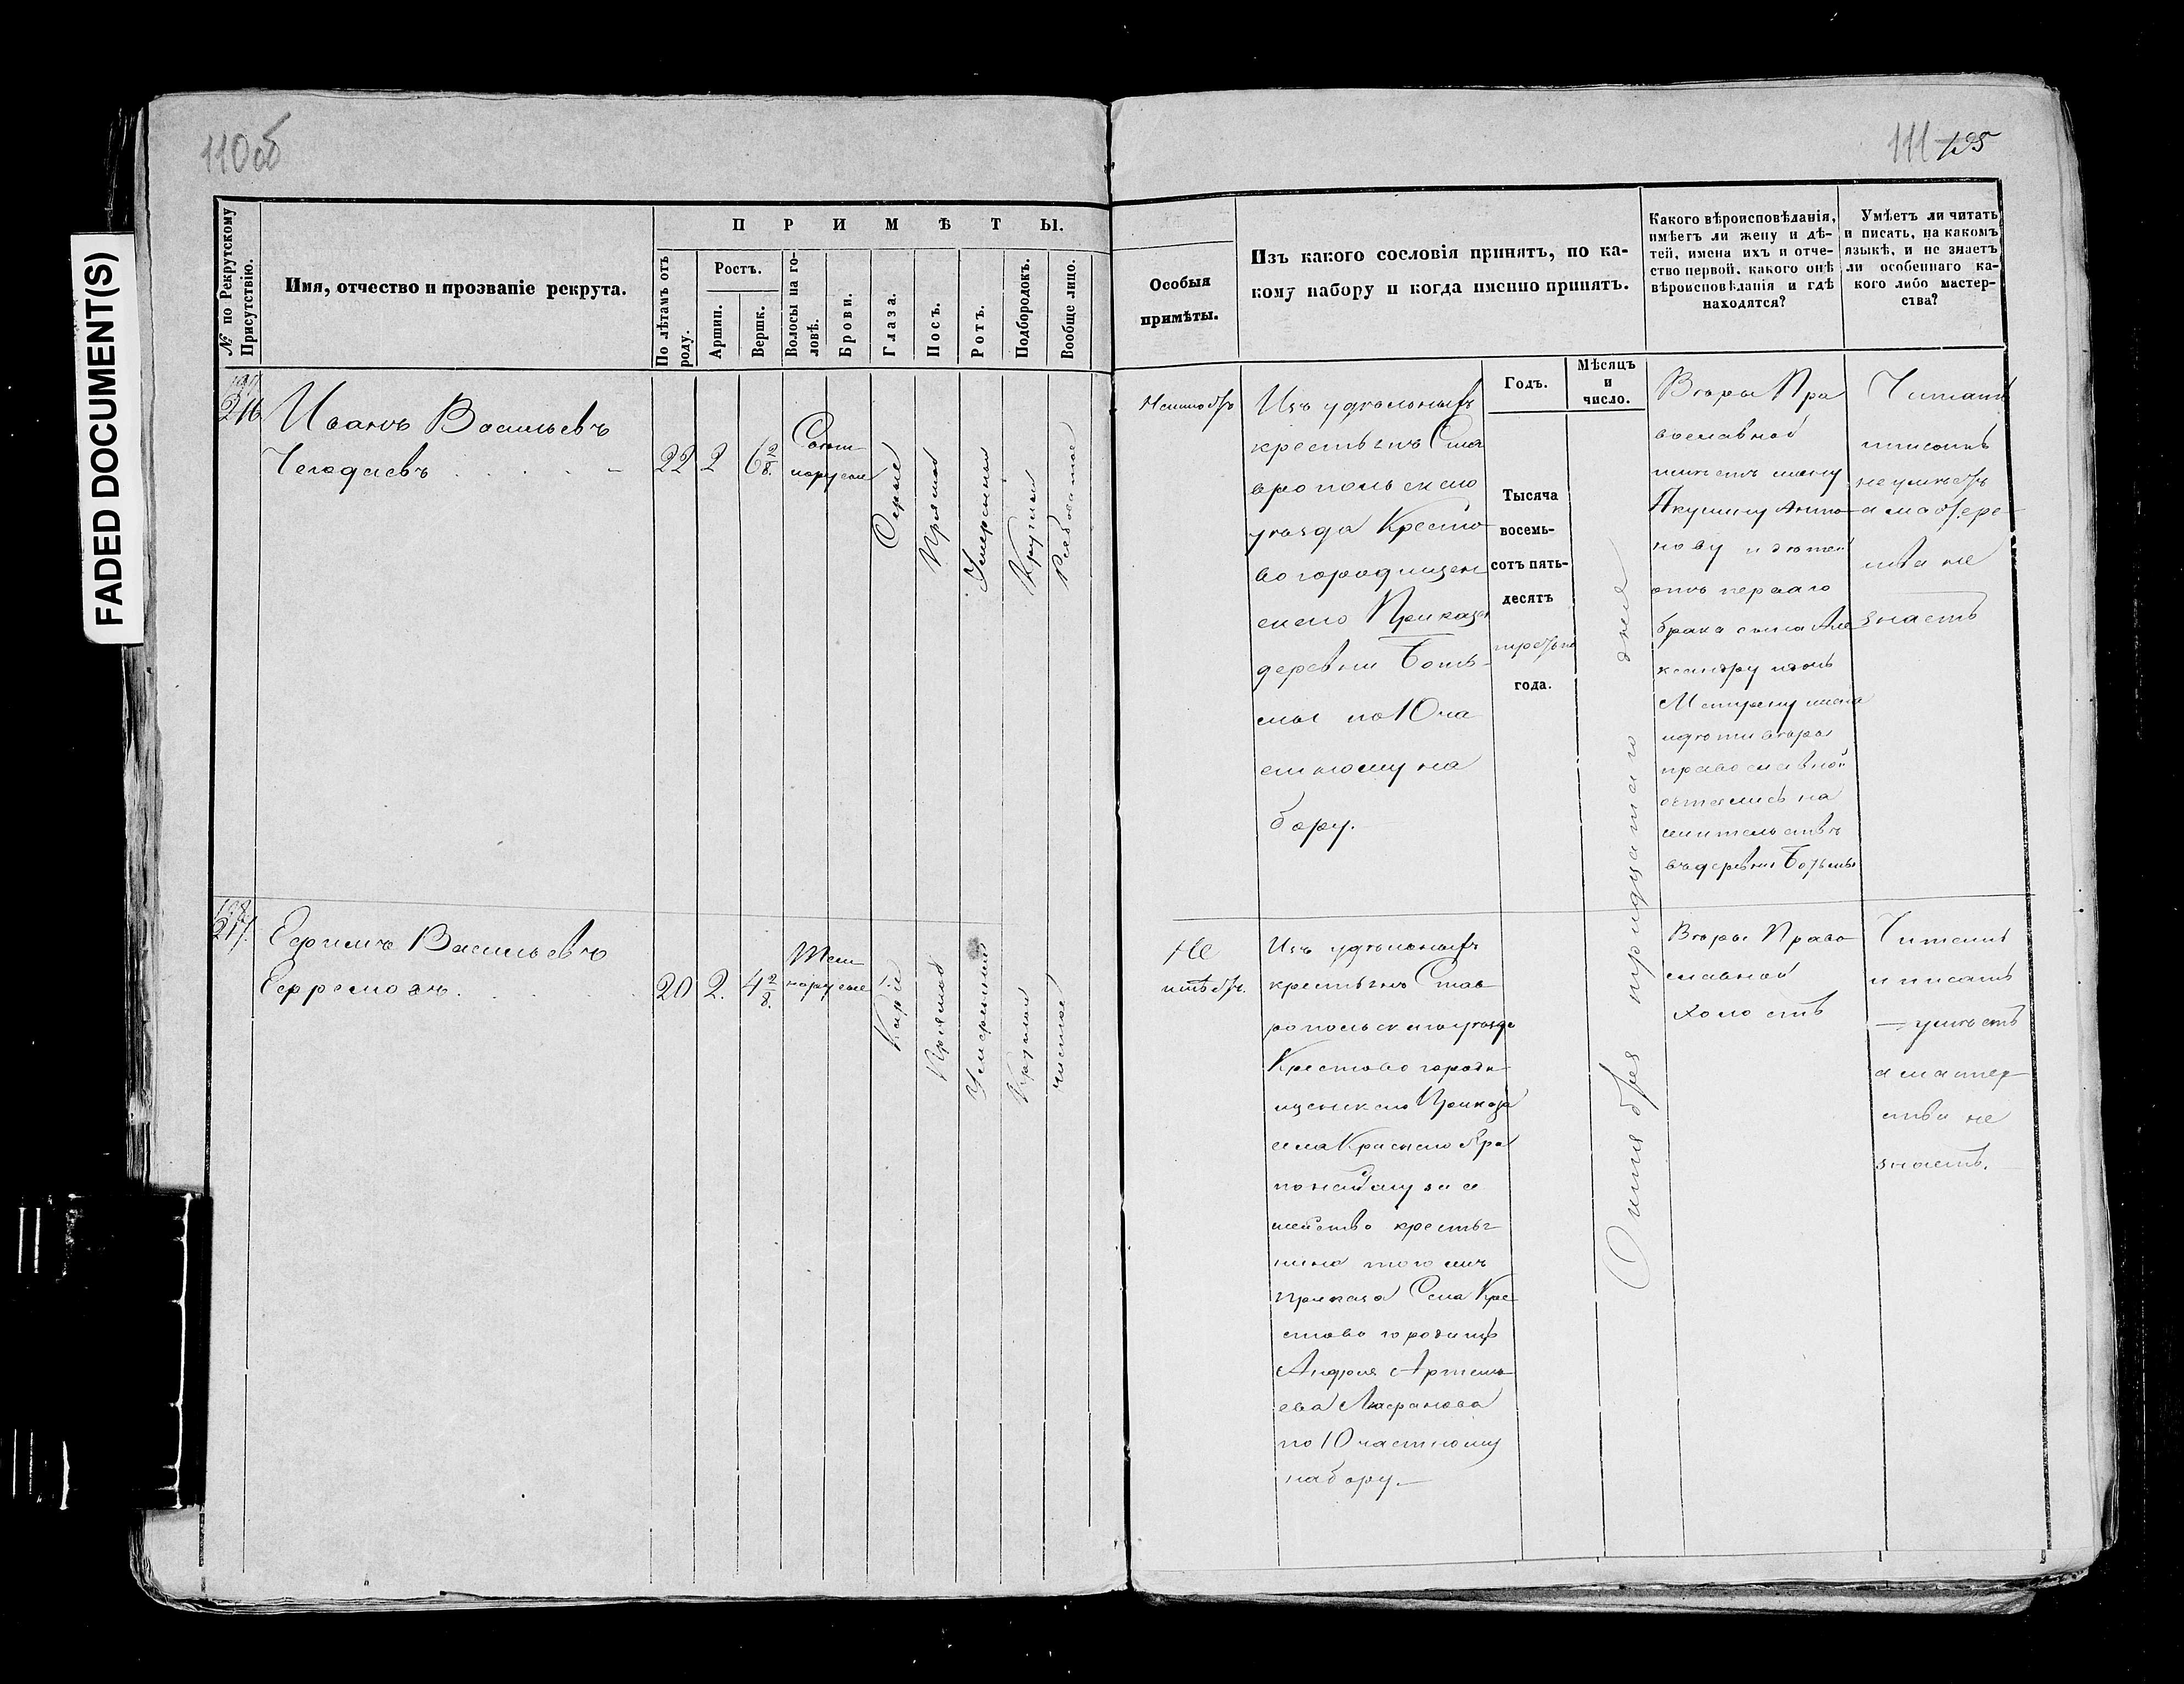 FADED DOCUMENT(S)
110об
111 125
№ по Рекрутскому Присутствію.
Имя, отчество и прозваніе рекрута.
ПРИМѢТЫ.
По лѣтамъ отъ роду.
Ростъ.
Аршин.
Вершк.
Волосы на головѣ.
Брови.
Глаза.
Носъ.
Ротъ.
Подбородокъ.
Вообще лицо.
Особыя
примѣты.
Изъ какого сословія принятъ, по ка-
кому набору и когда именно принятъ.
Какого вѣроисповѣданія,
имѣетъ ли жену и дѣ-
тей, имена ихъ и отче-
ство первой, какого онѣ
вѣроисповѣданія и гдѣ
находятся?
Умѣетъ ли читать
и писать, на какомъ
языкѣ, и не знаетъ
ли особеннаго ка-
кого либо мастер-
ства?
Годъ.
Мѣсяцъ
и
число.
216
Иванъ Васильевъ
Чегодаевъ
22
2
6
Свѣт-
лорусые
Сѣрые
Прямой
Умеренный
Круглый
Рябоватое
Неимѣетъ
Изъ удѣльныхъ
крестьянъ Ста
вропольскаго
уѣзда Кресто
вогородищен
скаго Приказа
деревни
по 10 ча
стному на
бору.
Тысяча
восемь-
сотъ пять-
десятъ
третьяго
года.
Октября тридцатаго дня
Вѣры Пра
вославной
имѣетъ жену
Акулину Анто
нову и дѣтей
отъ перваго
брака сына Але
ксандру и дочь
Матрену жена
и дѣти вѣры
православной
остались на
жительствѣ
въ деревнѣ
Читать
писать
не умѣетъ
а мастер
ства не
знаетъ
217.
Ефимъ Васильевъ
Ефремовъ
20
2.
4 2/8
Тем
норусые
Каріи
Прямой
Умеренный
Круглый
чистое
Не
имѣетъ.
Изъ удѣльныхъ
крестьянъ Став
ропольскаго уѣзда
Крестово городи
щенскаго Приказа
села Краснаго Яра
по найму за се
мейство крестья
нина того жъ
приказа Села Кре
стово городищъ
Андрея Артемь
ева
по 10 частному
набору.
Вѣры Право
славной
Холостъ
Читать
и писать
умѣетъ
а мастер
ства не
знаетъ.